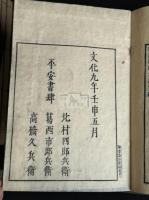 文化九年壬申五月
平安書肆
北村四郎兵衛
葛西市郎兵衛
高橋久兵衛